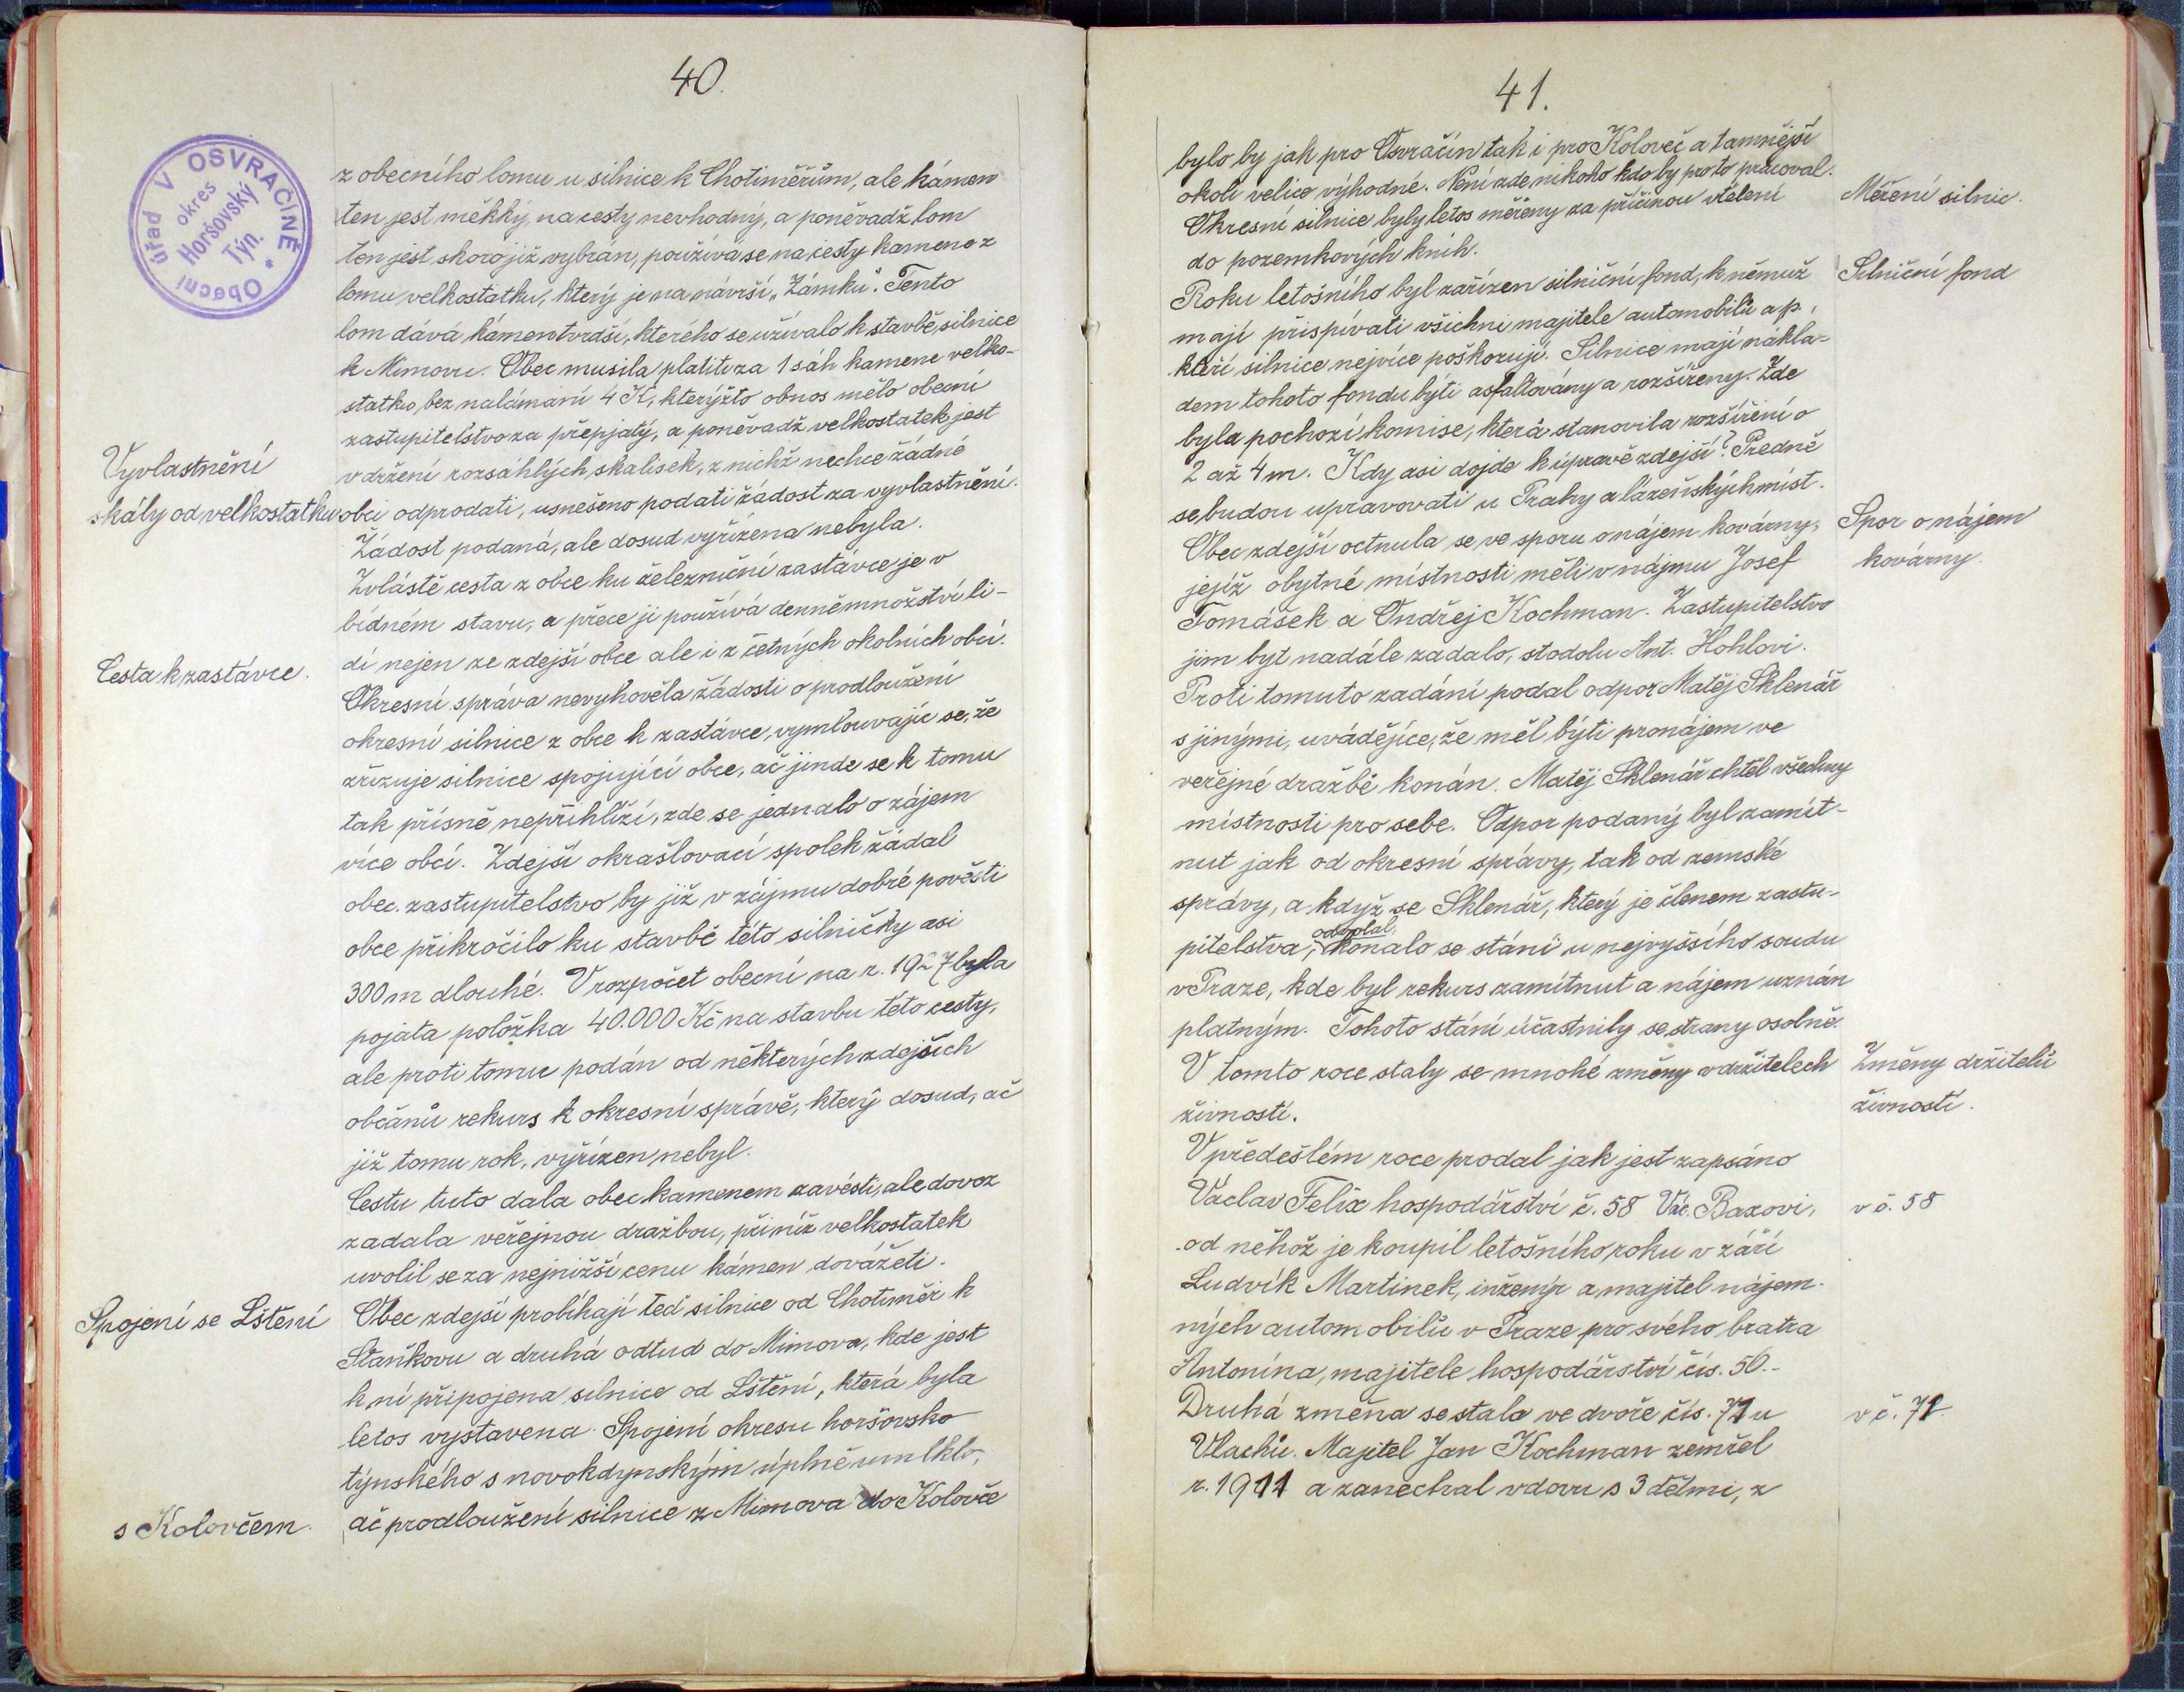 40.
Obecní úřad V OSVRAČÍNĚ *
okres
Horšovský
Týn.
z obecního lomu u silnice k Chotiměřům, ale kámen
ten jest měkký, na cesty nevhodný, a poněvadž lom
ten jest skoro již vybrán, používá se na cesty kamene z
lomu velkostatku, který je na návrší „Zámku“. Tento
lom dává kámen tvrdší, kterého se užívalo k stavbě silnice
k Mimovu. Obec musila platiti za 1 sáh kamene velko-
statku, bez nalámání 4 K, kterýžto obnos mělo obecní
zastupitelstvo za přepjatý, a poněvadž velkostatek jest
Vyvlastnění
v držení rozsáhlých skalisek, z nichž nechce žádné
skály od velkostatku
obci odprodati, usneseno podati žádost za vyvlastnění.
Žádost podaná, ale dosud vyřízena nebyla.
Zvláště cesta z obce ku železniční zastávce je v
bídném stavu, a přece ji používá denně množství li-
Cesta k zastávce.
dí nejen ze zdejší obce ale i z četných okolních obcí.
Okresní správa nevyhověla žádosti o prodloužení
okresní silnice z obce k zastávce, vymlouvajíc se, že
zřizuje silnice spojující obce, ač jinde se k tomu
tak přísně nepřihlíží, zde se jednalo o zájem
více obcí. Zdejší okrašlovací spolek žádal
obec. zastupitelstvo, by již v zájmu dobré pověsti
obce přikročilo ku stavbě této silničky asi
300 m dlouhé. V rozpočet obecní na r. 1927 byla
pojata položka 40.000 Kč na stavbu této cesty,
ale proti tomu podán od některých zdejších
občanů rekurs k okresní správě, který dosud, ač
již tomu rok, vyřízen nebyl.
Cestu tuto dala obec kamenem zavésti, ale dovoz
zadala veřejnou dražbou, při níž velkostatek
uvolil se za nejnižší cenu kámen dovážeti.
Spojení se Lštění
Obec zdejší probíhají teď silnice od Chotiměř k
Staňkovu a druhá odtud do Mimova, kde jest
k ní připojena silnice od Lštění, která byla
letos vystavena. Spojení okresu horšovsko
týnského s novokdynským úplně umlklo,
s Kolovčem.
ač prodloužení silnice z Mimova do Kolovče
41.
bylo by jak pro Osvračín tak i pro Koloveč a tamnější
okolí velice výhodné. Není zde nikoho kdo by pro to pracoval.
Okresní silnice byly letos měřeny za příčinou vtělení
Měření silnic.
do pozemkových knih.
Roku letošního byl zařízen silniční fond, k němuž
Silniční fond
mají přispívati všichni majitele automobilů a p.,
kteří silnice nejvíce poškozují. Silnice mají nákla-
dem tohoto fondu býti asfaltovány a rozšířeny. Zde
byla pochozí komise, která stanovila rozšíření o
2 až 4 m. Kdy asi dojde k úpravě zdejší? Předně
se budou upravovati u Prahy a lázeňských míst.
Obec zdejší octnula se ve sporu o nájem kovárny,
Spor o nájem
kovárny.
jejíž obytné místnosti měli v nájmu Josef
Tomášek a Ondřej Kochman. Zastupitelstvo
jim byt nadále zadalo, stodolu Ant. Hohlovi.
Proti tomuto zadání podal odpor Matěj Sklenář
s jinými, uvádějíce, že měl býti pronájem ve
veřejné dražbě konán. Matěj Sklenář chtěl všechny
místnosti pro sebe. Odpor podaný byl zamít-
nut jak od okresní správy, tak od zemské
správy, a když se Sklenář, který je členem zastu-
odvolal,
pitelstva, konalo se stání u nejvyššího soudu
v Praze, kde byl rekurs zamítnut a nájem uznán
platným. Tohoto stání účastnily se strany osobně.
V tomto roce staly se mnohé změny v držitelech
Změny držitelů
živností.
živností.
V předešlém roce prodal jak jest zapsáno
Václav Felix hospodářství č. 58 Vác. Baxovi,
v č. 58
od něhož je koupil letošního roku v září
Ludvík Martinek, inženýr a majitel nájem-
ných automobilů v Praze pro svého bratra
Antonína, majitele hospodářství čís. 50.-
Druhá změna se stala ve dvoře čís. 71 u
v č. 71.
Vlachů. Majitel Jan Kochman zemřel
r. 1911 a zanechal vdovu s 3 dětmi, z